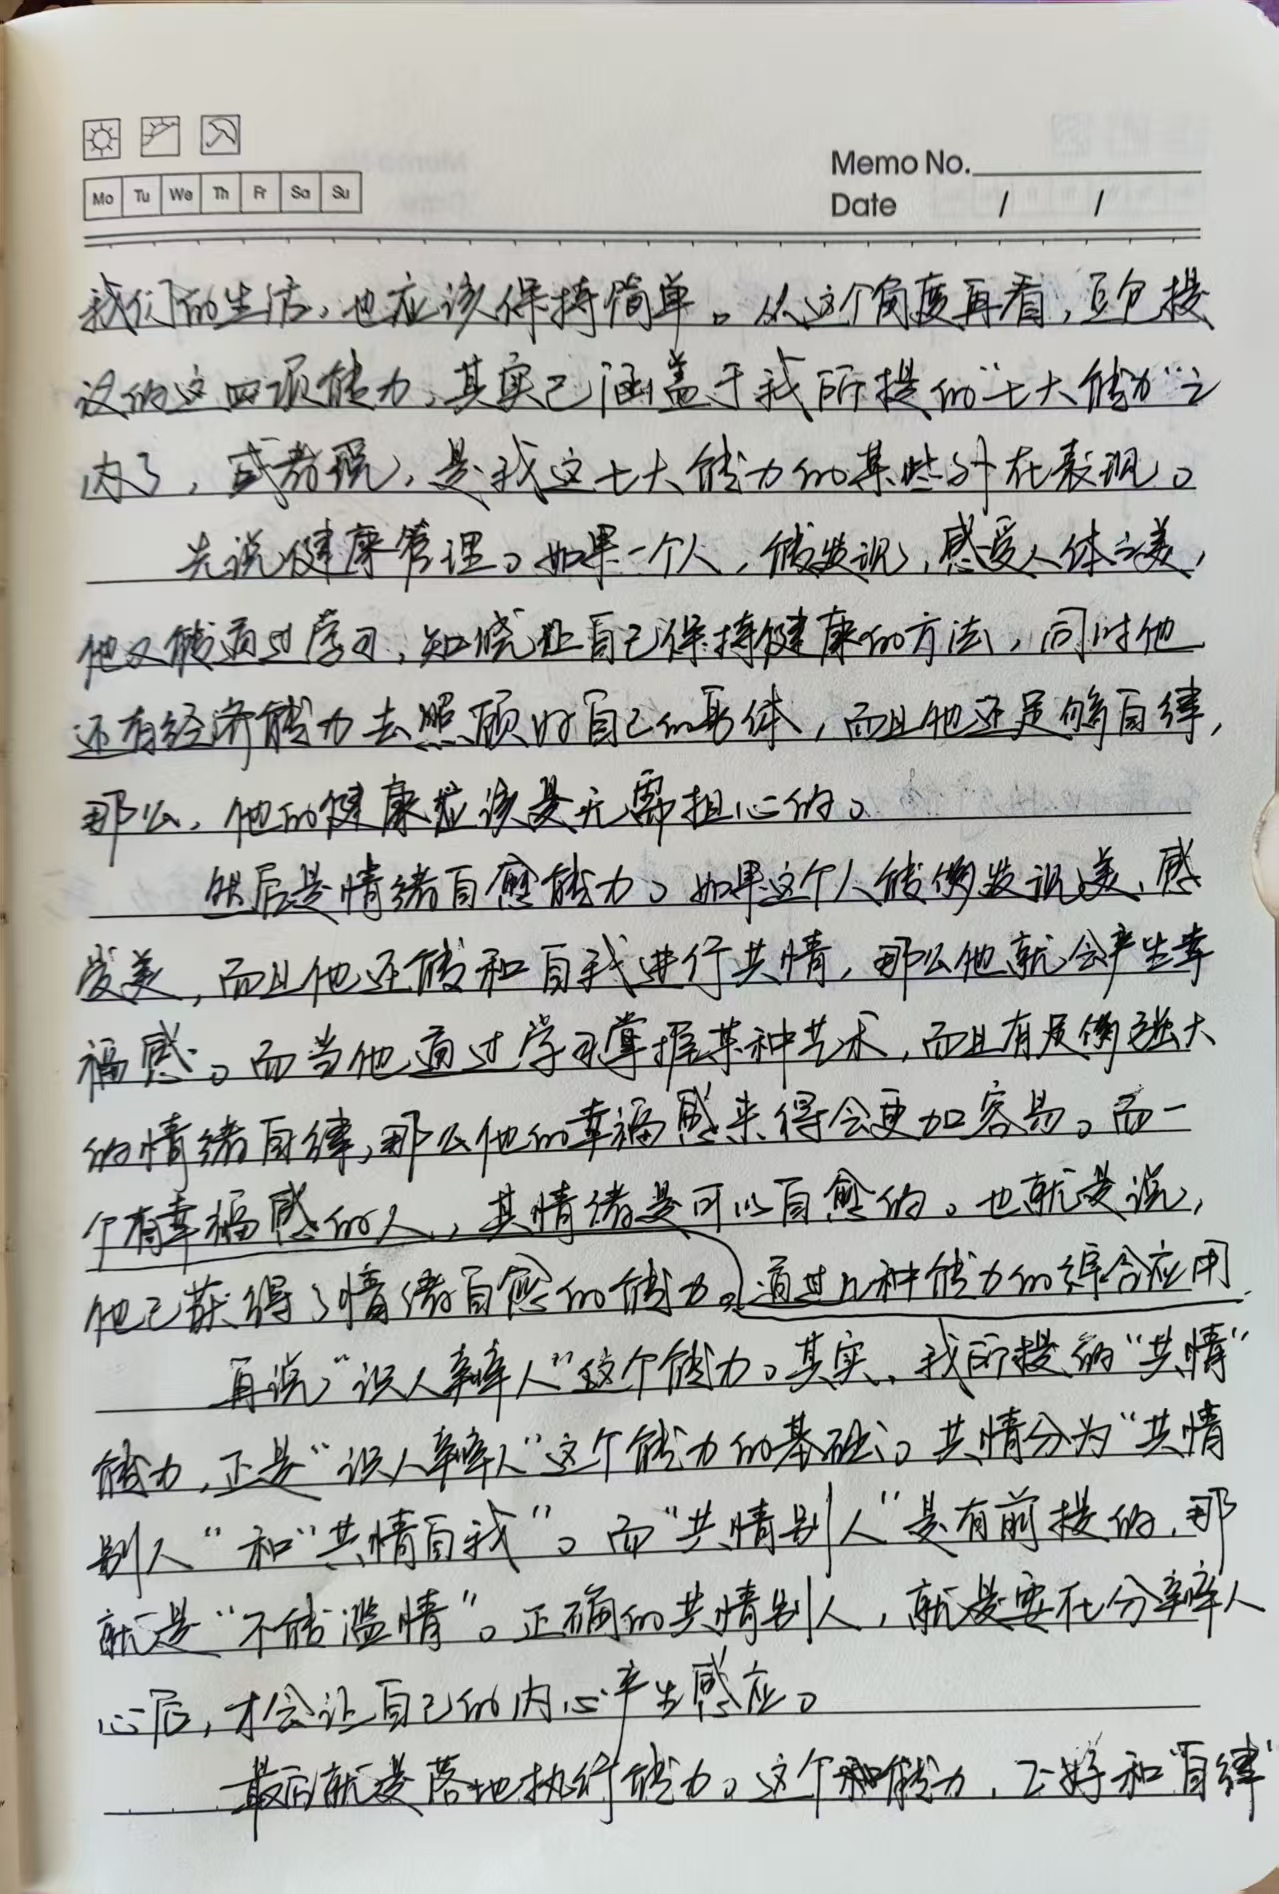 Memo No.
Mo Tu We Th Fr Sa Su
Date / /
我们的生活，也应该保持简单。从这个角度再看，豆包提
议的这四项能力，其实已涵盖于我所提的“七大能力”之
内了，或者说，是我这七大能力的某些外在表现。
先说健康管理。如果一个人，能发现，感受人体之美，
他又能通过学习，知晓让自己保持健康的方法，同时他
还有经济能力去照顾好自己的身体，而且他还足够自律，
那么，他的健康应该是无需担心的。
然后是情绪自愈能力。如果这个人能够发现美，感
受美，而且他还能和自我进行共情，那么他就会产生幸
福感。而当他通过学习掌握某种艺术，而且有足够强大
的情绪自律，那么他的幸福感来得会更加容易。而一
个有幸福感的人，其情绪是可以自愈的。也就是说，
他已获得了情绪自愈的能力。通过几种能力的综合应用
再说“识人辨人”这个能力。其实，我所提的“共情”
能力，正是“识人辨人”这个能力的基础。共情分为“共情
别人”和“共情自我”。而“共情别人”是有前提的，那
就是“不能滥情”。正确的共情别人，就是要在分辨人
心后，才会让自己的内心产生感应。
最后就是落地执行能力。这个能力，正好和“自律”